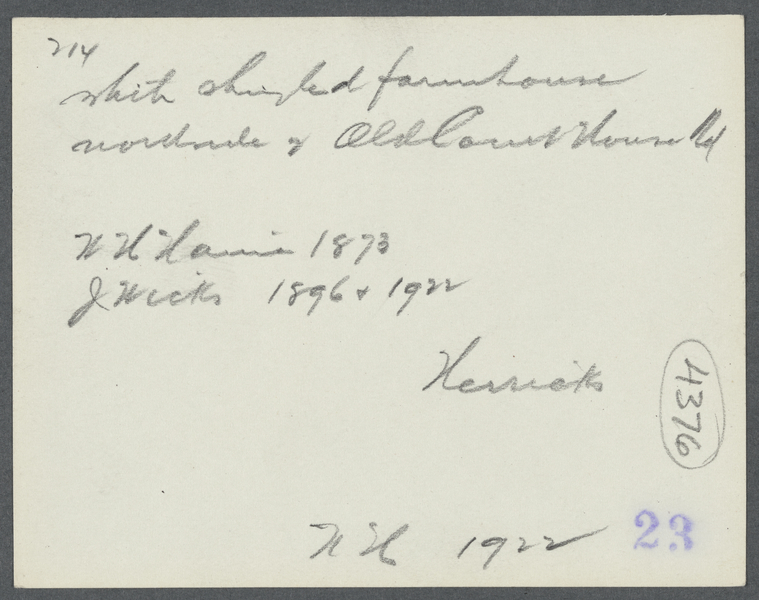 214
white shingled farmhouse
northside of Old Court House Rd
W H Harris 1873
J Wicks 1896 + 1922
Herricks
4376
N H 1922
23